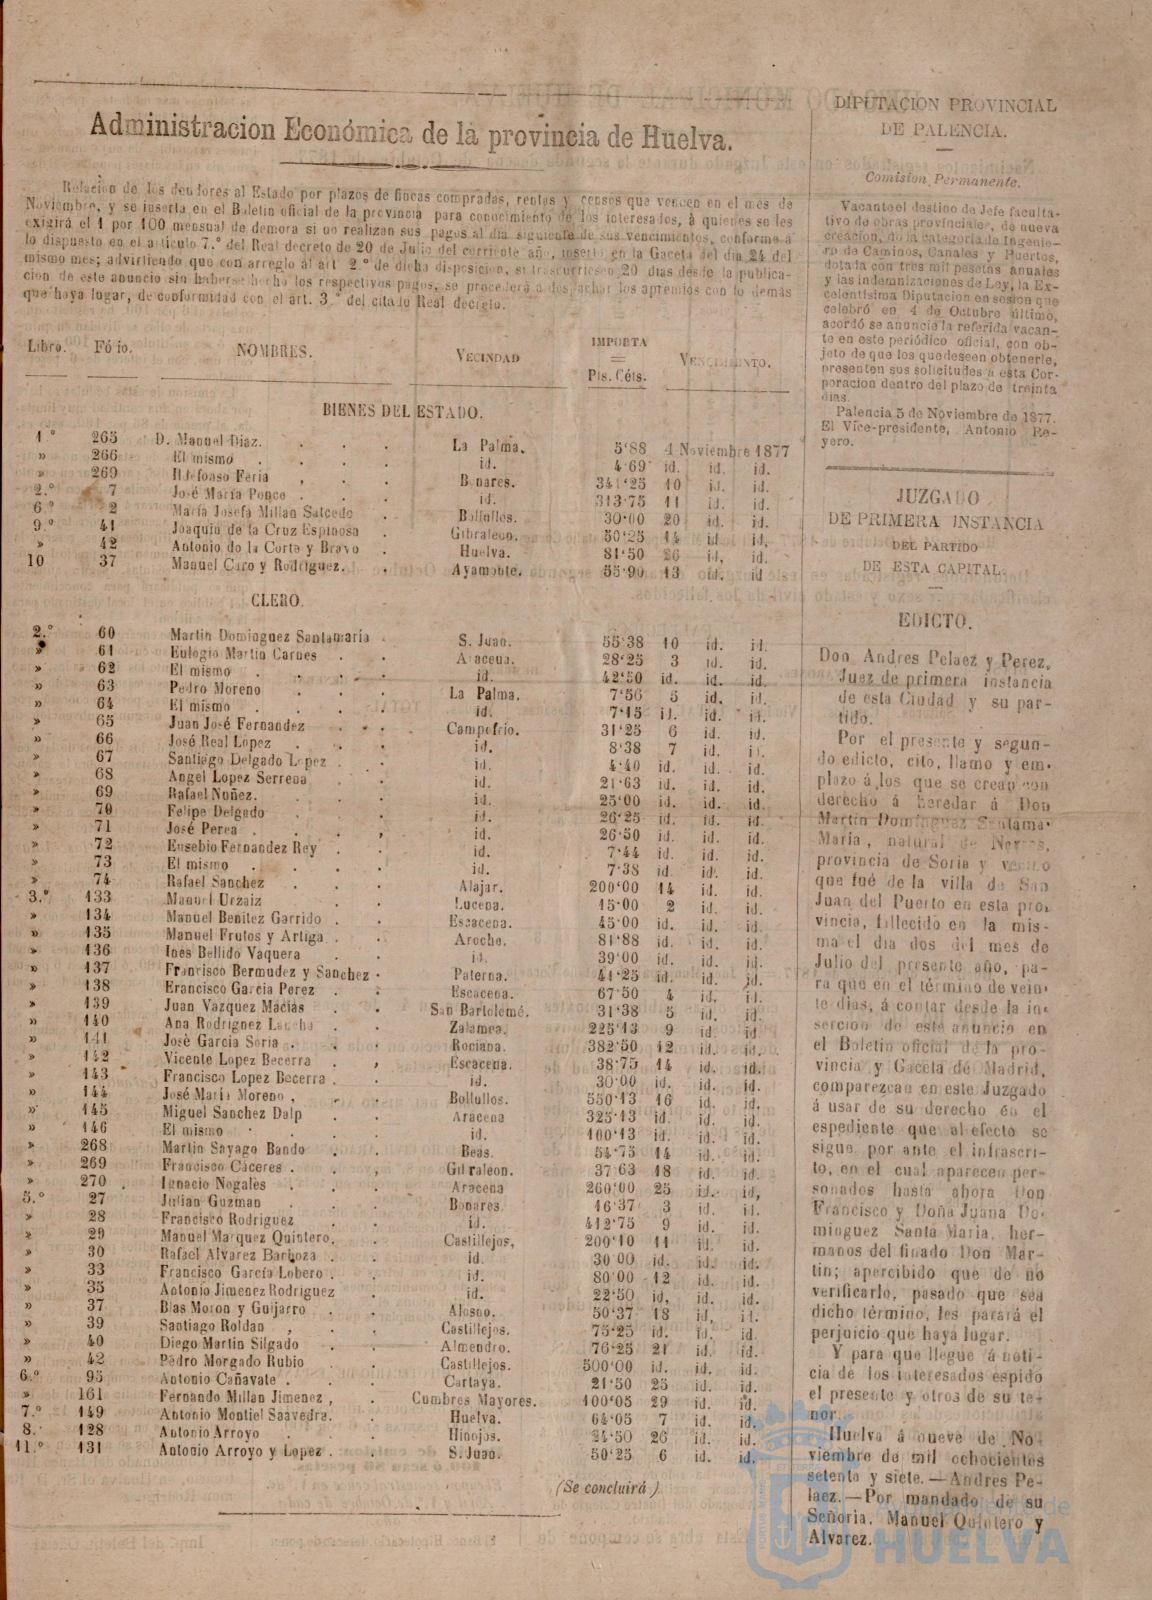 Administracion Económica de la provincia de Huelva.
Relacion de los deudores al Estado por plazos de fincas compradas, rentas y censos que vencen en el mes de
Noviembre, y se inserta en el Boletin oficial de la provincia para conocimiento de los interesados, à quienes se les
exigirá el 1 por 100 mensual de demora si no realizan sus pagos al dia siguiente de sus vencimientos, conforme á
lo dispuesto en el articulo 7.° del Real decreto de 20 de Julio del corriente año, inserto en la Gaceta del dia 24 del
mismo mes; advirtiendo que con arreglo al art 2.° de dicha disposicion, si trascurriesen 20 dias desde la publica-
cion de este anuncio sin haberse hecho los respectivos pagos, se procederá a despachar los apremios con lo demás
que haya lugar, de conformidad con el art. 3.° del citado Real decreto.
Libro. Fó io. NOMBRES. VECINDAD IMPORTA Pts. Céts. VENCIMIENTO.
BIENES DEL ESTADO.
1° 265 D. Manuel Diaz. La Palma. 5'88 4 Noviembre 1877
» 266 El mismo id. 4'69 id. id. id.
» 269 Ildefonso Feria Bonares. 341'25 10 id. id.
2.° 7 José María Ponce id. 313'75 11 id. id.
6.° 2 María Josefa Millan Salcedo Bollullos. 30'00 20 id. id.
9.° 41 Joaquin de la Cruz Espinosa Gibraleon. 50'25 14 id. id.
» 42 Antonio de la Corte y Bravo Huelva. 81'50 26 id, id.
10 37 Manuel Caro y Rodriguez. Ayamonte. 55'90 13 id. id
CLERO.
2.° 60 Martin Dominguez Santamaría S. Juan. 55'38 10 id. id.
» 61 Eulogio Martin Carnes Aracena. 28'25 3 id. id.
» 62 El mismo id. 42'50 id. id. id.
» 63 Pedro Moreno La Palma. 7'56 5 id. id.
» 64 El mismo id. 7'15 id. id. id.
» 65 Juan José Fernandez Campofrio. 31'25 6 id. id.
» 66 José Real Lopez id. 8'38 7 id. id.
» 67 Santiago Delgado Lopez id. 4'40 id. id. id.
» 68 Angel Lopez Serrena id. 21'63 id. id. id.
» 69 Rafael Nuñez. id. 25'00 id. id. id.
» 70 Felipe Delgado id. 26'25 id. id. id.
» 71 José Perea id. 26'50 id. id. id.
» 72 Eusebio Fernandez Rey id. 7'44 id. id. id.
» 73 El mismo id. 7'38 id. id. id.
» 74 Rafael Sanchez Alajar. 200'00 14 id. id.
3.° 133 Manuel Urzaiz Lucena. 15'00 2 id. id.
» 134 Manuel Benitez Garrido Escacena. 45'00 id. id. id.
» 135 Manuel Frutos y Artiga Aroche. 81'88 id. id. id.
» 136 Ines Bellido Vaquera id. 39'00 id. id. id.
» 137 Francisco Bermudez y Sanchez Paterna. 41'25 id. id. id.
» 138 Erancisco Garcia Perez Escacena. 67'50 4 id. id.
» 139 Juan Vazquez Macias San Bartolomé. 31'38 5 id. id.
» 140 Ana Rodriguez Zalamea. 225'13 9 id. id
» 141 Josè Garcia Soria Rociana. 382'50 12 id. id.
» 142 Vicente Lopez Becerra Escacena. 38'75 14 id. id.
» 143 Francisco Lopez Becerra id. 30'00 id. id. id.
» 144 José Maria Moreno Bollullos. 550'13 16 id. id.
» 145 Miguel Sanchez Dalp Aracena 325'13 id. id. id.
» 146 El mismo id. 100'13 id. id. id.
» 268 Martin Sayago Bando Beas. 54'75 14 id. id.
» 269 Francisco Cáceres Gibraleon. 37'63 18 id. id.
» 270 Ignacio Nogales Aracena 260'00 25 id. id,
5.° 27 Julian Guzman Bonares. 16'37 3 id. id.
» 28 Francisco Rodriguez id. 412'75 9 id. id.
» 29 Manuel Marquez Quintero. Castillejos, 200'10 11 id. id.
» 30 Rafael Alvarez Barboza id. 30'00 id. id. id.
» 33 Francisco García Lobero id. 80'00 12 id. id.
» 35 Antonio Jimenez Rodriguez id. 22'50 id, id. id.
» 37 Blas Moron y Guijarro Alosno. 50'37 18 id, id.
» 39 Santiago Roldan Castillejos. 75'25 id. id. id.
» 40 Diego Martin Silgado Almendro. 76'25 21 id. id.
» 42 Pedro Morgado Rubio Castillejos. 500'00 id. id. id.
6.° 95 Antonio Cañavate Cartaya. 21'50 25 id. id.
» 161 Fernando Millan Jimenez Cumbres Mayores. 100'05 29 id. id.
7.° 149 Antonio Montiel Saavedra. Huelva. 64'05 7 id. id.
8. 128 Antonio Arroyo Hinojos. 24'50 26 id. id.
11.° 131 Antonio Arroyo y Lopez S. Juan. 50'25 6 id. id.
(Se concluirá)
DIPUTACION PROVINCIAL
DE PALENCIA.
Comision Permanente.
Vacante el destino de Jefe faculta-
tivo de obras provinciales, de nueva
creacion, de la categoria de Ingenie-
ro de Caminos, Canales y Puertos,
dotada con tres mil pesetas anuales
y las indemnizaciones de Ley, la Ex-
celentísima Diputacion en sesion que
celebró en 4 de Octubre último,
acordó se anuncie la referida vacan-
te en este periódico oficial, con ob-
jeto de que los que deseen obtenerle,
presenten sus solicitudes a esta Cor-
poracion dentro del plazo de treinta
dias.
Palencia 5 de Noviembre de 1877.
El Vice-presidente, Antonio Re-
yero.
JUZGADO
DE PRIMERA INSTANCIA
DEL PARTIDO
DE ESTA CAPITAL.
EDICTO.
Don Andres Pelaez y Perez,
Juez de primera instancia
de esta Ciudad y su par-
tido.
Por el presente y segun-
do edicto, cito, llamo y em-
plazo á los que se crean con
derecho á heredar á Don
Martin Dominguez Santama-
Maria, natural de
provincia de Soria y vecino
que fué de la villa de San
Juan del Puerto en esta pro-
vincia, fallecido en la mis-
ma el dia dos del mes de
Julio del presente año, pa-
ra que en el término de vein-
te dias, á contar desde la in-
sercion de este anuncio en
el Boletin oficial de la pro-
vincia y Gaceta de Madrid,
comparezcan en este Juzgado
á usar de su derecho en el
espediente que al efecto se
sigue por ante el infrascri-
to, en el cual aparecen per-
sonados hasta ahora Don
Francisco y Doña Juana Do-
minguez Santa Maria, her-
manos del finado Don Mar-
tin; apercibido que de no
verificarlo, pasado que sea
dicho término, les parará el
perjuicio que haya lugar.
Y para que llegue á noti-
cia de los interesados espido
el presente y otros de su te-
nor.
Huelva á nueve de No-
viembre de mil ochocientos
setenta y siete.—Andres Pe-
laez.—Por mandado de su
Señoria, Manuel Quintero y
Alvarez.
Ayuntamiento de
HUELVA